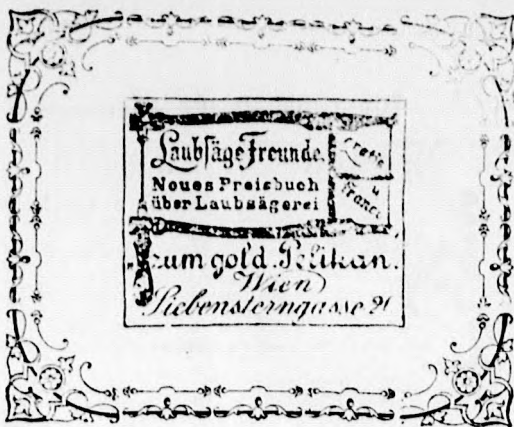 Laubsäge Freunde.
Neues Preisbuch
über Laubsägerei
Gratis
u
Franco
„zum gold. Pelikan.
Wien
Siebensterngasse 21